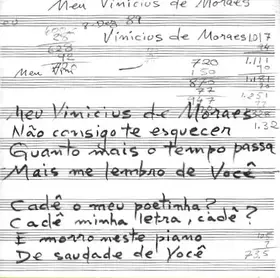 Meu Vinicius de Moraes
Vinicius de Moraes 1017
720
1.111
150
Meu
Meu Vinicius de Moraes
Não consigo te esquecer
Quanto mais o tempo passa
Mais me lembro de Você
Cadê o meu poetinha?
Cadê minha letra, cadê?
E morro neste piano
De saudade de Você
735